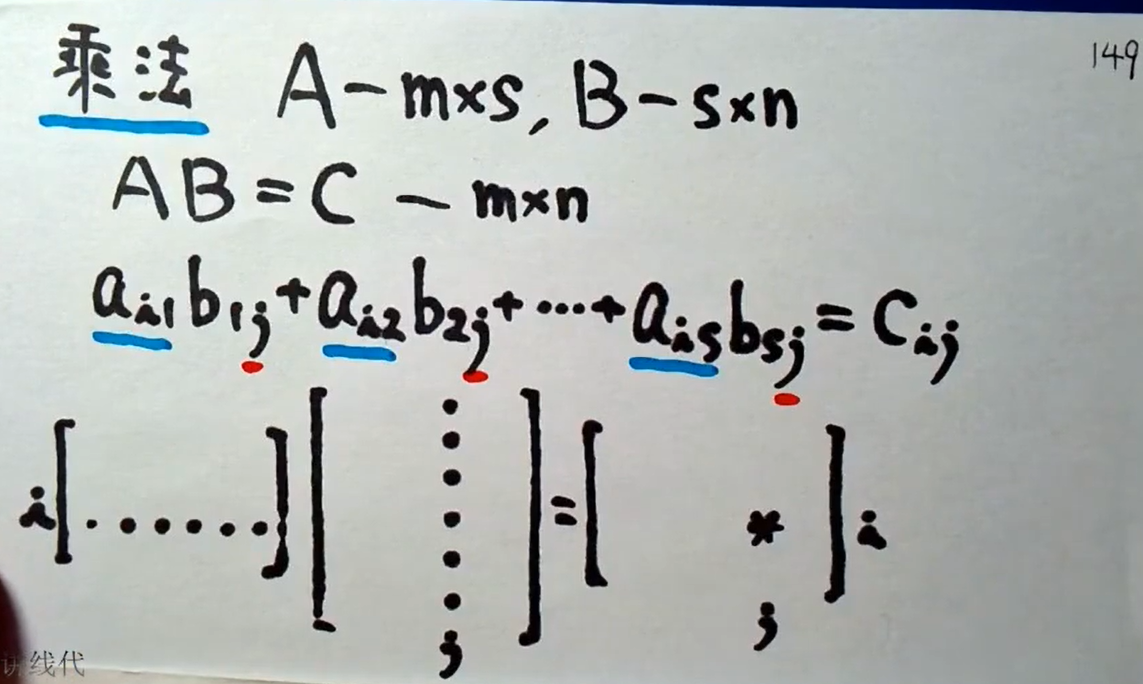 149
乘法 A-m×s, B-s×n
AB=C - m×n
a_{i1}b_{1j}+a_{i2}b_{2j}+⋯+a_{is}b_{sj}=C_{ij}
i[......][⋮]=[ * ]i
j j
讲线代